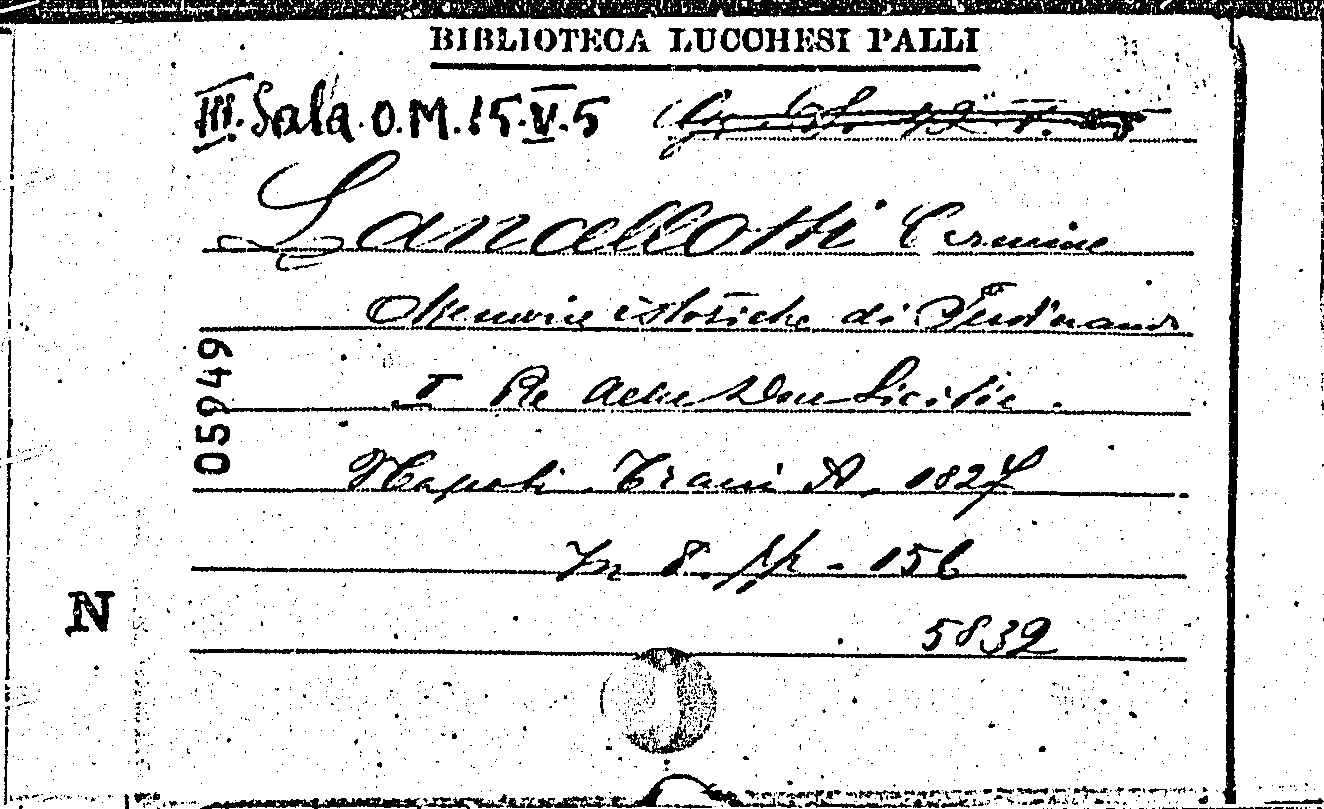 BIBLIOTECA LUCCHESI PALLI
III. Sala. O. M. 15. V. 5
Lancellotti Carmine
Memorie istoriche di Ferdinando
I Re delle Due Sicilie.
Napoli. Trani A. 1827
In 8. pp. 156
5832
05949
N